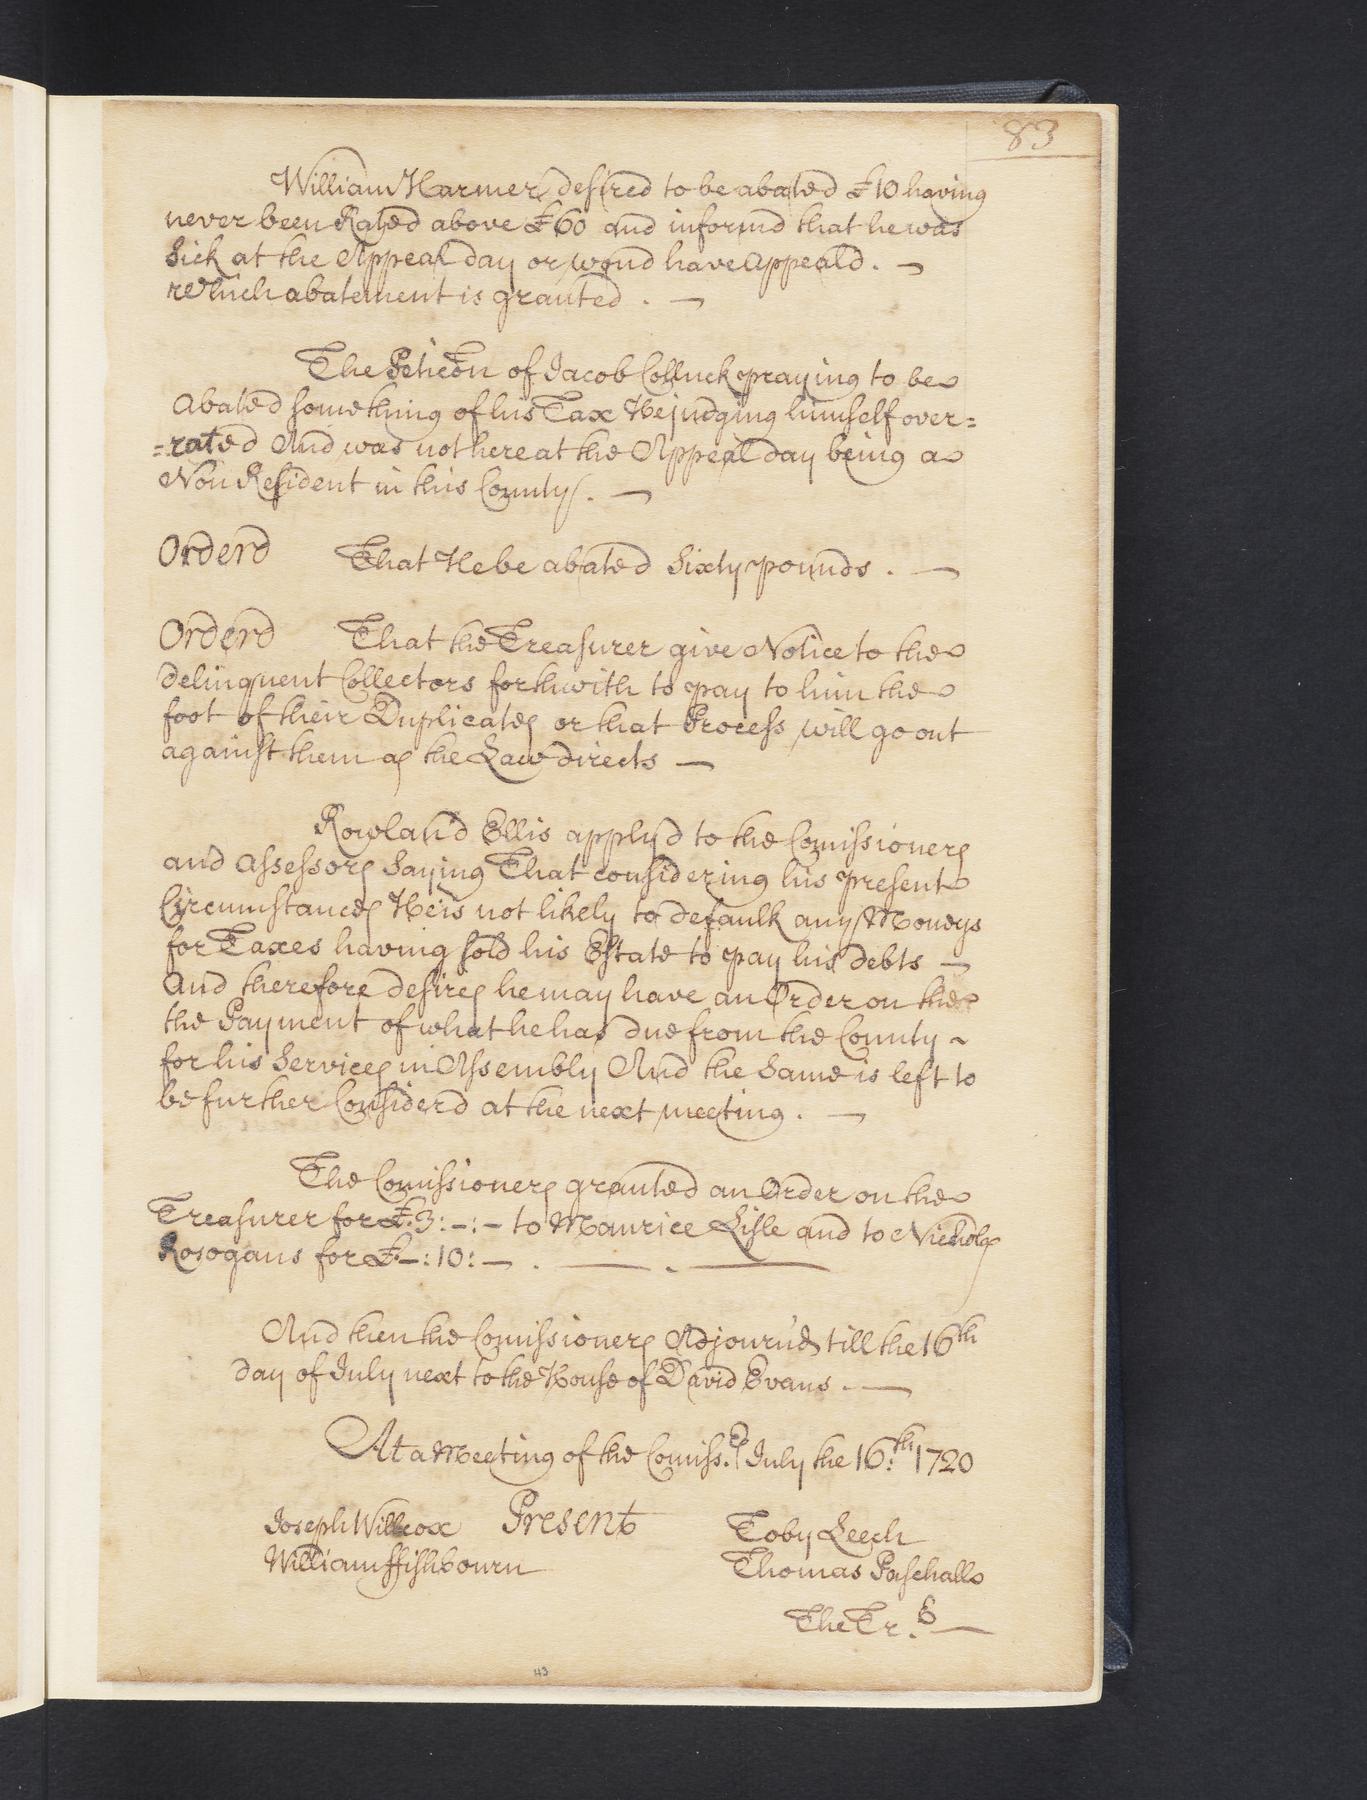 83
William Harmer desired to be abated £10 having
never been Rated above £60 and informd that he was
Sick at the Appeal day or woud have appeald . —
which abatement is granted . —
The Peticon of Jacob Colluck praying to be
Abated something of his Tax He judging himself over=
=rated And was not here at the Appeal day being a
Non Resident in this County . —
Orderd That He be abated Sixty pounds . —
Orderd That the Treasurer give Notice to the
delinquent Collectors forthwith to pay to him the
foot of their Duplicates or that Process will go out
against them as the Law directs —
Rowland Ellis apply'd to the Comissioners
and Assessors Saying That considering his present
Circumstances He is not likely to defaulk any Moneys
for Taxes having sold his Estate to pay his debts —
And therefore desires he may have an Order on the
the Payment of what he has due from the County ~
for his Services in Assembly And the Same is left to
be further Considerd at the next meeting . —
The Comissioners granted an Order on the
Treasurer for £.3:-:- to Maurice Lisle and to Nicholas
Rosogans for £-:10:- . — . —
And then the Comissioners Adjourn'd till the 16th
day of July next to the House of David Evans . —
At a Meeting of the Comiss.rs July the 16.th 1720
Joseph Willcox Present Toby Leech
William ffishbourn Thomas Paschall
The Tr.E —
43